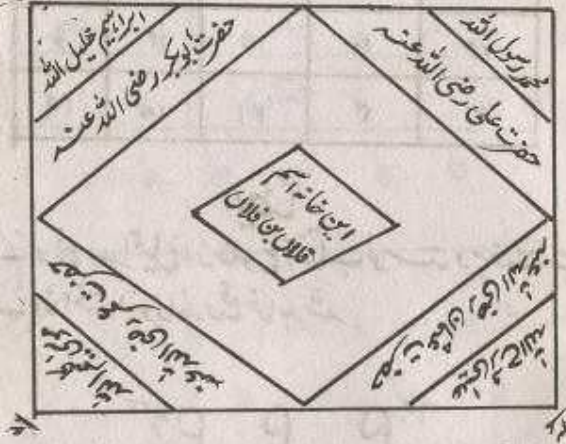 محمد رسول اللہ
حضرت علی رضی اللہ عنہ
ابراہیم خلیل اللہ
حضرت ابوبکر رضی اللہ عنہ
این خانہ اسم
فلاں بن فلاں
حضرت عثمان رضی اللہ عنہ
عیسیٰ روح اللہ
حضرت عمر رضی اللہ عنہ
موسیٰ کلیم اللہ